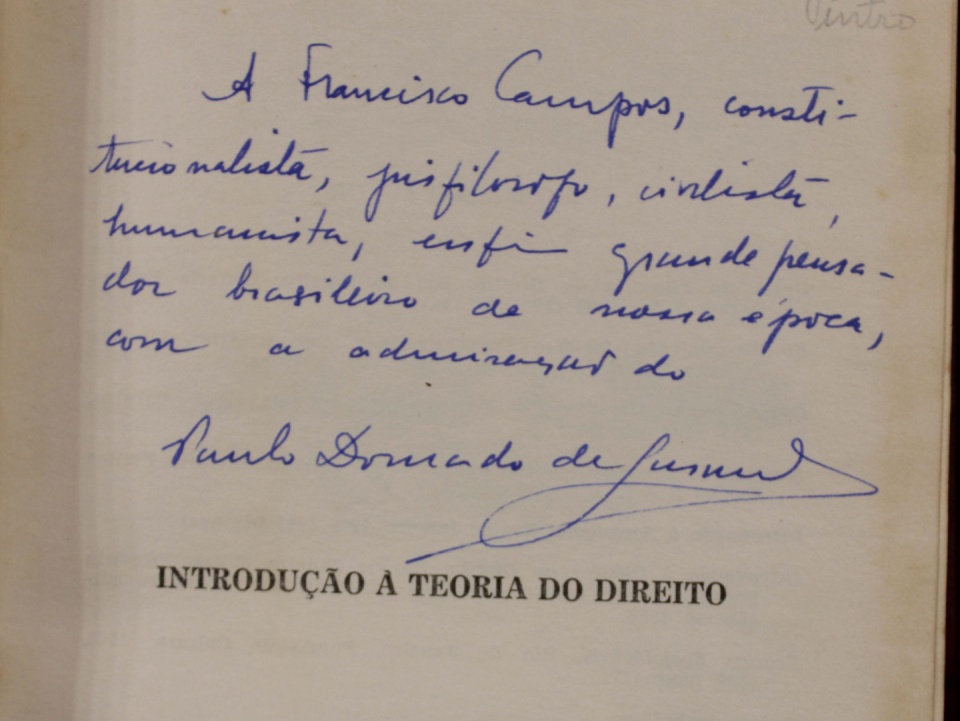 A Francisco Campos, consti-
tucionalista, jusfilósofo, civilista,
humanista, enfim grande pensa-
dor brasileiro de nossa época,
com a admiração do
Paulo Dourado de Gusmão
INTRODUÇÃO À TEORIA DO DIREITO